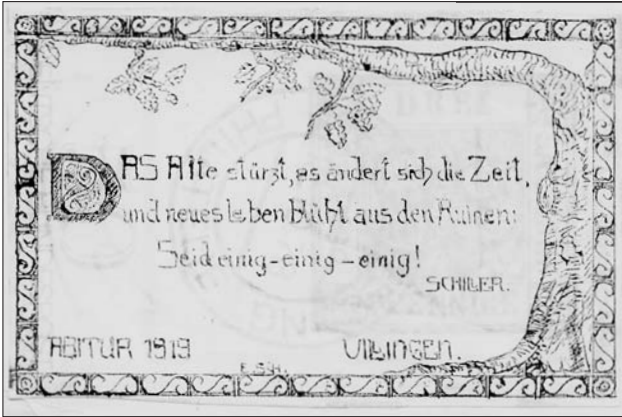 DAS Alte stürzt, es ändert sich die Zeit,
und neues leben blüht aus den Ruinen:
Seid einig-einig-einig!
SCHILLER.
ABITUR 1919 VILLINGEN.
E.SCH.